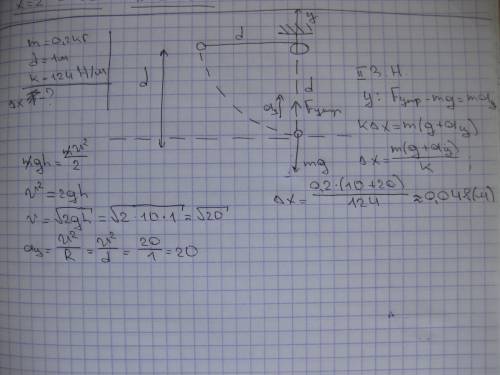 m = 0,2кг
d = 1м
k = 124 Н/м
Δx - ?
d
y
d
d
aц
Fупр
mg
mgh = mv²/2
v² = 2gh
v = √2gh = √2·10·1 = √20
aц = v²/R = v²/d = 20/1 = 20
II З.Н.
y: Fупр - mg = maц
kΔx = m(g + aц)
Δx = m(g + aц)/k
Δx = 0,2·(10+20)/124 ≈ 0,048(м)